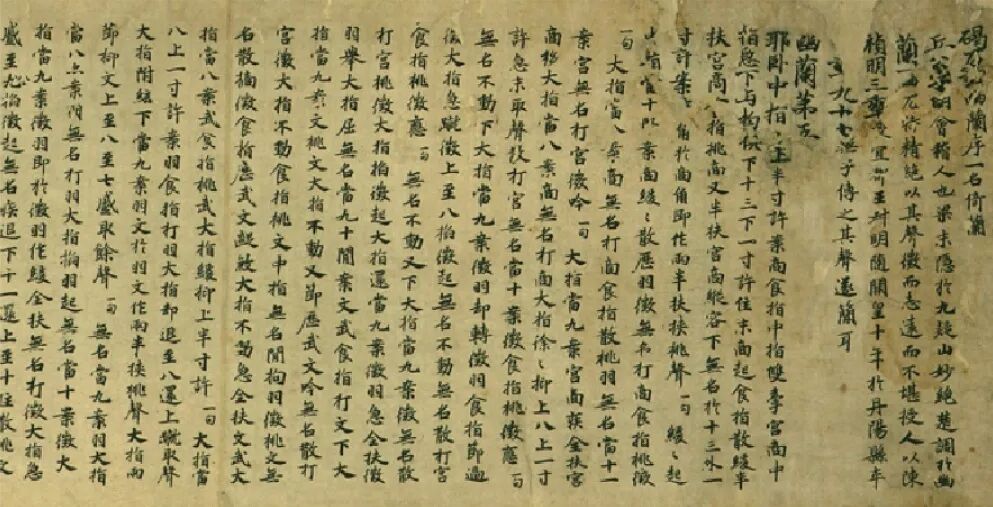 碣石調幽蘭序一名倚蘭
丘公字明會稽人也梁末隱於九疑山妙絕楚調於幽
蘭一曲尤特精絕以其聲微而志遠而不堪授人以陳
禎明三年授宜都王叔明隨開皇十年於丹陽縣卒
年九十七無子傳之其聲遂簡耳
幽蘭第五
耶臥中指十上半寸許案商食指中指雙牽宮商中
指急下与拘俱下十三下一寸許住末商起食指散緩半
扶宮商食指挑商又半扶宮商縱容下無名於十三外一
寸許案商角於商角即作兩半扶挾挑聲一句 緩緩起
十以案商緩緩散歷羽徵無名打商食指挑徵
一句 大指當八案商無名打商食指散挑羽無名當十一
案宮無名打宮徵吟一句 大指當九案宮商疾全扶宮
商移大指當八案商無名打商大指徐徐抑上八上一寸
許急末取聲散打宮無名當十案徵食指挑徵應一句
無名不動下大指當九案徵羽却轉徵羽食指節過
徐大指急蹴徵上至八掐徵起無名不動無名散打宮
食指挑徵應一句 無名不動又下大指當九案徵無名散
打宮挑徵大指掐徵起大指還當九案徵羽急全扶徵
羽舉大指屈無名當九十間案文武食指打文下大
指當九案文挑文大指不動又節歷武文吟無名散打
宮徵大指不動食指挑文中指無名間拘羽徵挑文無
名散摘徵食指應武文大指不動急全扶文武大
指當八案武食指挑武大指緩抑上半寸許一句 大指當
八上一寸許案羽食指打羽大指却退至八還上蹴取聲
大指附絃下當九案羽文於羽文作兩半挾挑聲大指兩
節抑文上至八至七盡取餘聲一句 無名當九案羽大指
當八案間無名打羽大指掐羽起無名當十案徵大
指當九案徵羽即於徵羽作緩全扶無名打徵大指急
蹙至九掐徵起無名疾退下十一還上至十住散挑文